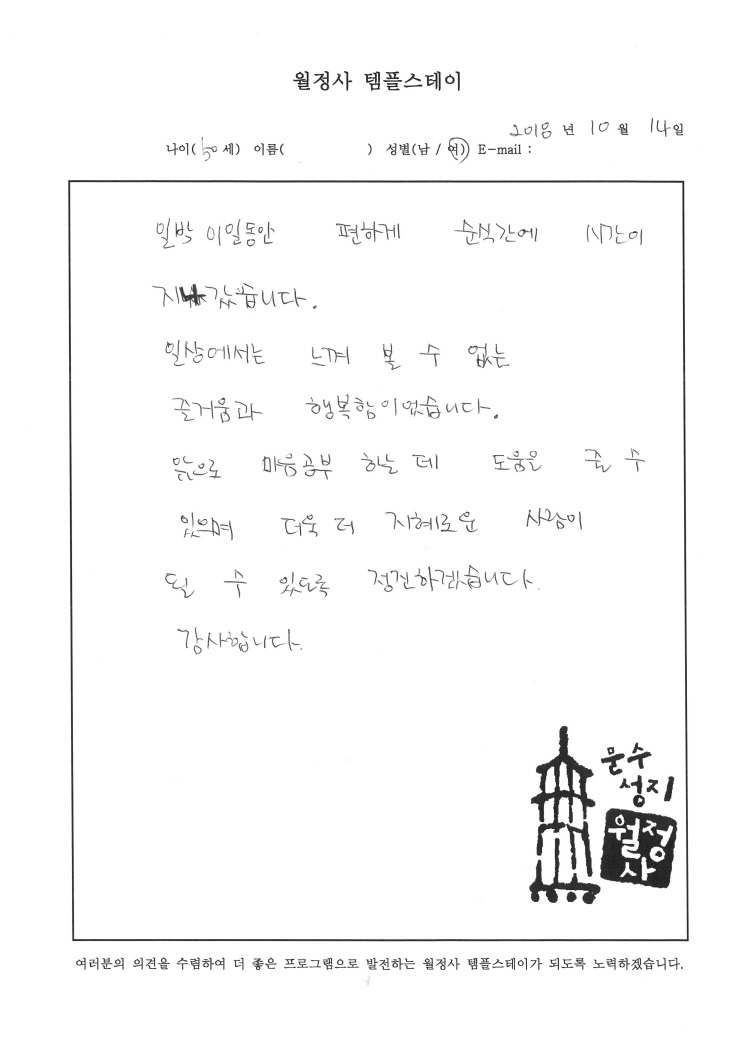 월정사 템플스테이
2018 년 10 월 14 일
나이( 50 세) 이름( ) 성별(남 / 여) E-mail :
일박 이일동안 편하게 순식간에 시간이
지나갔습니다.
일상에서는 느껴 볼 수 없는
즐거움과 행복함이었습니다.
앞으로 마음공부 하는 데 도움을 줄 수
있으며 더욱 더 지혜로운 사람이
될 수 있도록 정진하겠습니다.
감사합니다.
문수
성지
월정
사
여러분의 의견을 수렴하여 더 좋은 프로그램으로 발전하는 월정사 템플스테이가 되도록 노력하겠습니다.